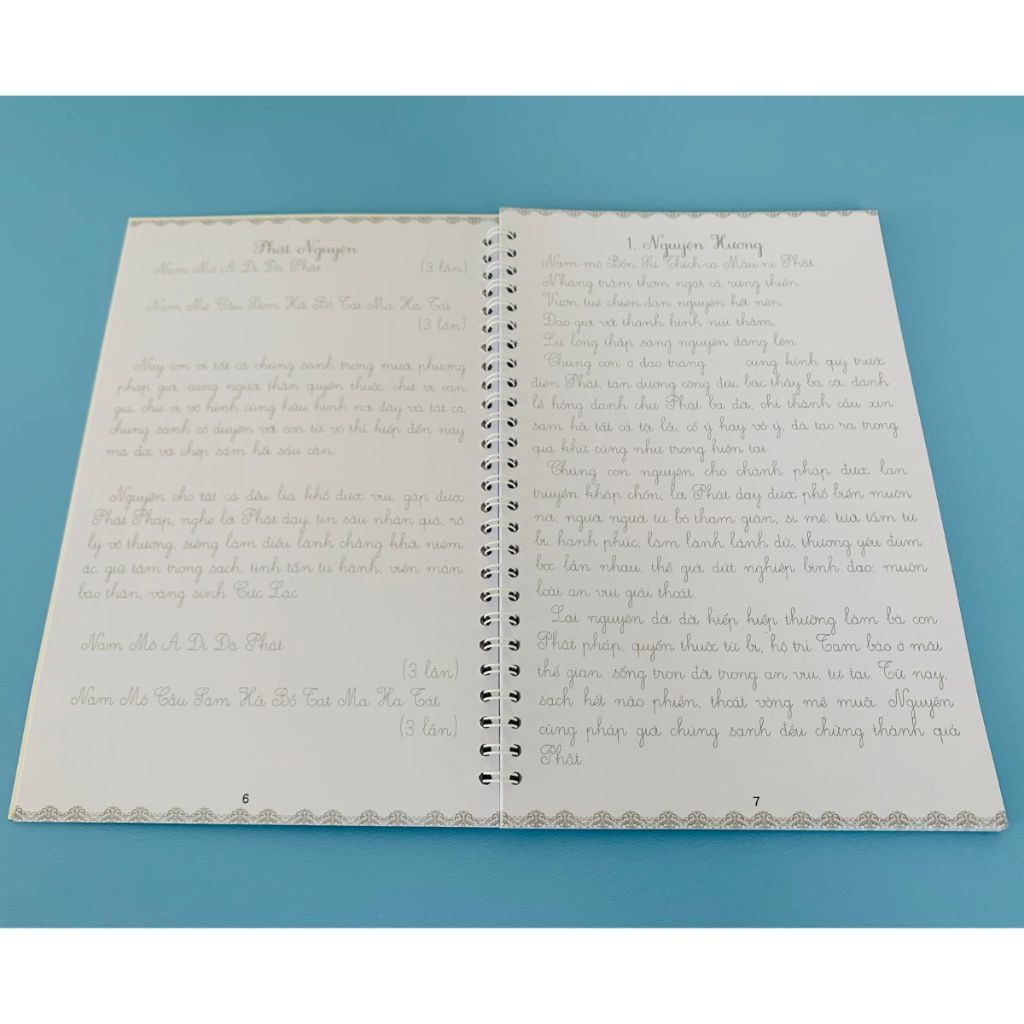 Phát Nguyện
Nam Mô A Di Đà Phật (3 lần)
Nam Mô Cầu Sám Hối Bồ Tát Ma Ha Tát
(3 lần)
Nay con vì tất cả chúng sanh trong mười phương
pháp giới cùng người thân quyến thuộc, chư vị oan
gia, chư vị vô hình cùng hữu hình nơi đây và tất cả
chúng sanh có duyên với con từ vô thỉ kiếp đến nay
mà đọc và chép sám hối sáu căn.
Nguyện cho tất cả đều lìa khổ được vui, gặp được
Phật Pháp, nghe lời Phật dạy, tin sâu nhân quả, rõ
lý vô thường, siêng làm điều lành chẳng khởi niệm
ác, giữ tâm trong sạch, tinh tấn tu hành, viên mãn
báo thân, vãng sinh Cực Lạc.
Nam Mô A Di Đà Phật
(3 lần)
Nam Mô Cầu Sám Hối Bồ Tát Ma Ha Tát
(3 lần)
6
1. Nguyện Hương
Nam mô Bổn Sư Thích ca Mâu ni Phật
Nhang trầm thơm ngát cả rừng thiền,
Vườn tuệ chiên đàn nguyện kết nên,
Đao giới vót thành hình núi thẳm,
Lư lòng thắp sáng nguyện dâng lên.
Chúng con ở đạo tràng .... cung kính quỳ trước
điện Phật, tán dương công đức bậc thầy ba cõi, đảnh
lễ hồng danh chư Phật ba đời, chí thành cầu xin
sám hối tất cả tội lỗi, cố ý hay vô ý, đã tạo ra trong
quá khứ cũng như trong hiện tại.
Chúng con nguyện cho chánh pháp được lan
truyền khắp chốn, lời Phật dạy được phổ biến muôn
nơi, người người từ bỏ tham giận, si mê; tưới tẩm từ
bi, hạnh phúc, làm lành lánh dữ, thương yêu đùm
bọc lẫn nhau; thế giới dứt nghiệp binh đao; muôn
loài an vui giải thoát.
Lại nguyện đời đời kiếp kiếp thường làm bà con
Phật pháp, quyến thuộc từ bi, hộ trì Tam bảo ở mãi
thế gian, sống trọn đời trong an vui, tự tại. Từ nay,
sạch hết não phiền, thoát vòng mê muội. Nguyện
cùng pháp giới chúng sanh đều chứng thành quả
Phật.
7